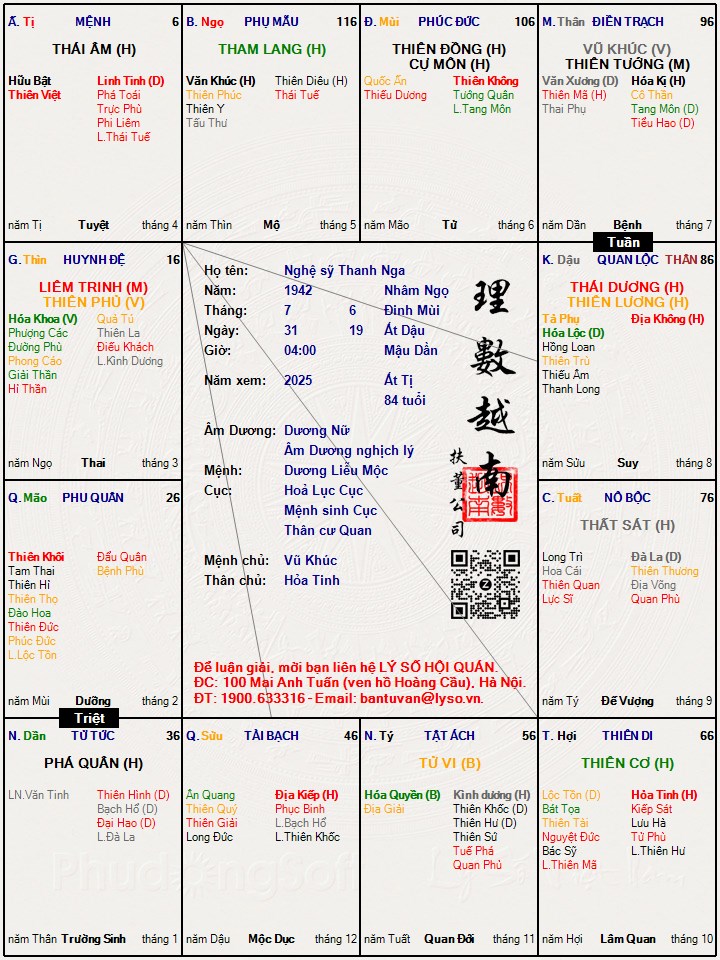 Ấ. Tị MỆNH 6
THÁI ÂM (H)
Hữu Bật
Thiên Việt
Linh Tinh (D)
Phá Toái
Trực Phù
Phi Liêm
L.Thái Tuế
năm Tị Tuyệt tháng 4
B. Ngọ PHỤ MẪU 116
THAM LANG (H)
Văn Khúc (H)
Thiên Phúc
Thiên Y
Tấu Thư
Thiên Diêu (H)
Thái Tuế
năm Thìn Mộ tháng 5
Đ. Mùi PHÚC ĐỨC 106
THIÊN ĐỒNG (H)
CỰ MÔN (H)
Quốc Ấn
Thiếu Dương
Thiên Không
Tướng Quân
L.Tang Môn
năm Mão Tử tháng 6
M. Thân ĐIỀN TRẠCH 96
VŨ KHÚC (V)
THIÊN TƯỚNG (M)
Văn Xương (D)
Thiên Mã (H)
Thai Phụ
Hóa Kị (H)
Cô Thần
Tang Môn (D)
Tiểu Hao (D)
năm Dần Bệnh tháng 7
Tuần
G. Thìn HUYNH ĐỆ 16
LIÊM TRINH (M)
THIÊN PHỦ (V)
Hóa Khoa (V)
Phượng Các
Đường Phù
Phong Cáo
Giải Thần
Hỉ Thần
Quả Tú
Thiên La
Điếu Khách
L.Kình Dương
năm Ngọ Thai tháng 3
Họ tên: Nghệ sỹ Thanh Nga
Năm: 1942 Nhâm Ngọ
Tháng: 7 6 Đinh Mùi
Ngày: 31 19 Ất Dậu
Giờ: 04:00 Mậu Dần
Năm xem: 2025 Ất Tị
84 tuổi
Âm Dương: Dương Nữ
Âm Dương nghịch lý
Mệnh: Dương Liễu Mộc
Cục: Hoả Lục Cục
Mệnh sinh Cục
Thân cư Quan
Mệnh chủ: Vũ Khúc
Thân chủ: Hỏa Tinh
理數越南
扶董公司
Để luận giải, mời bạn liên hệ LÝ SỐ HỘI QUÁN.
ĐC: 100 Mai Anh Tuấn (ven hồ Hoàng Cầu), Hà Nội.
ĐT: 1900.633316 - Email: bantuvan@lyso.vn.
K. Dậu QUAN LỘC THÂN 86
THÁI DƯƠNG (H)
THIÊN LƯƠNG (H)
Tả Phù
Hóa Lộc (D)
Hồng Loan
Thiên Trù
Thiếu Âm
Thanh Long
Địa Không (H)
năm Sửu Suy tháng 8
Q. Mão PHU QUÂN 26
Thiên Khôi
Tam Thai
Thiên Hỉ
Thiên Thọ
Đào Hoa
Thiên Đức
Phúc Đức
L.Lộc Tồn
Đẩu Quân
Bệnh Phù
năm Mùi Dưỡng tháng 2
C. Tuất NÔ BỘC 76
THẤT SÁT (H)
Long Trì
Hoa Cái
Thiên Quan
Lực Sĩ
Đà La (D)
Thiên Thương
Địa Võng
Quan Phù
năm Tý Đế Vượng tháng 9
Triệt
N. Dần TỬ TỨC 36
PHÁ QUÂN (H)
LN.Văn Tinh
Thiên Hình (D)
Bạch Hổ (D)
Đại Hao (D)
L.Đà La
năm Thân Trường Sinh tháng 1
Q. Sửu TÀI BẠCH 46
Ân Quang
Thiên Quý
Thiên Giải
Long Đức
Địa Kiếp (H)
Phục Binh
L.Bạch Hổ
L.Thiên Khốc
năm Dậu Mộc Dục tháng 12
N. Tý TẬT ÁCH 56
TỬ VI (B)
Hóa Quyền (B)
Địa Giải
Kình dương (H)
Thiên Khốc (D)
Thiên Hư (D)
Thiên Sứ
Tuế Phá
Quan Phủ
năm Tuất Quan Đới tháng 11
T. Hợi THIÊN DI 66
THIÊN CƠ (H)
Lộc Tồn (D)
Bát Tọa
Thiên Tài
Nguyệt Đức
Bác Sỹ
L.Thiên Mã
Hỏa Tinh (H)
Kiếp Sát
Lưu Hà
Tử Phù
L.Thiên Hư
năm Hợi Lâm Quan tháng 10